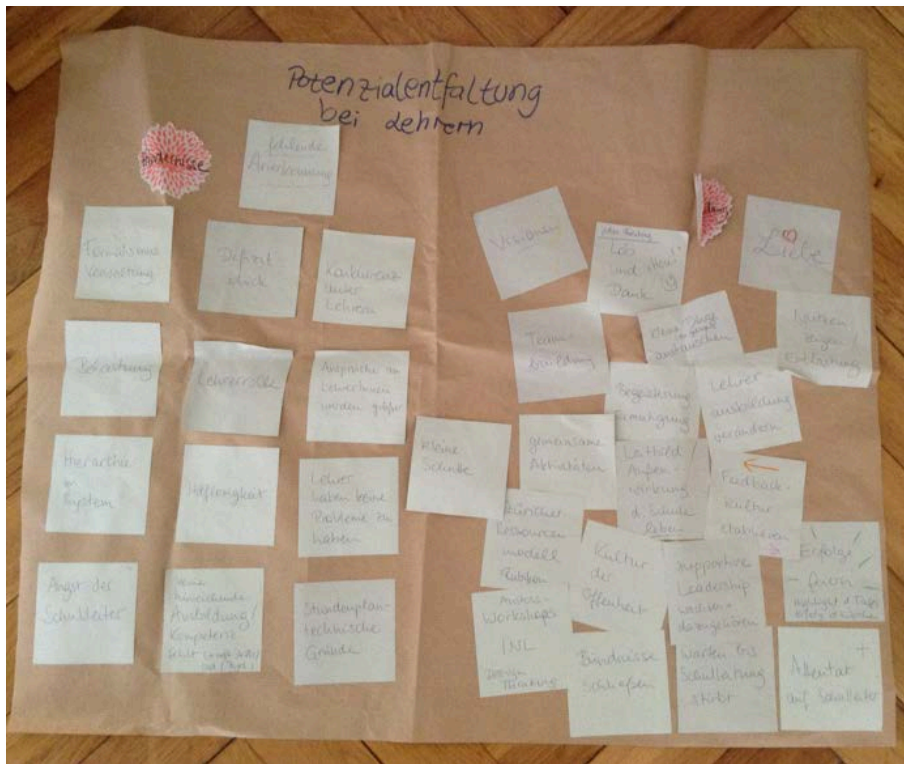 Potenzialentfaltung
bei Lehrern
Hindernisse
fehlende
Anerkennung
Formalismus
Verwaltung
Defizit-
blick
Konkurrenz
unter
Lehrern
Belastung
Lehrerrolle
Ansprüche an
LehrerInnen
werden größer
Hierarchie
System
Lehrer
haben keine
Probleme zu
haben
Angst der
Schulleiter
keine
hinreichende
Ausbildung/
Kompetenz
fehlt
Stundenplan-
technische
Gründe
Visionen
Lob
und
Dank
Liebe
Team-
building
kleine
austauschen
Entlastung
Begeisterung
Ermutigung
Lehrer
ausbildung
verändern
kleine
Schritte
gemeinsame
Aktivitäten
Leitbild
Außen-
wirkung
d. Schule
leben
Feedback-
Kultur
etablieren
Zürcher
Ressourcen
modell
Rubikon
Kultur
der
Offenheit
supportive
Leadership
dazugehören
Erfolge
feiern
Workshops
INL
Design
Thinking
Bündnisse
schließen
warten bis
Schulleitung
stirbt
Attentat
auf Schulleiter